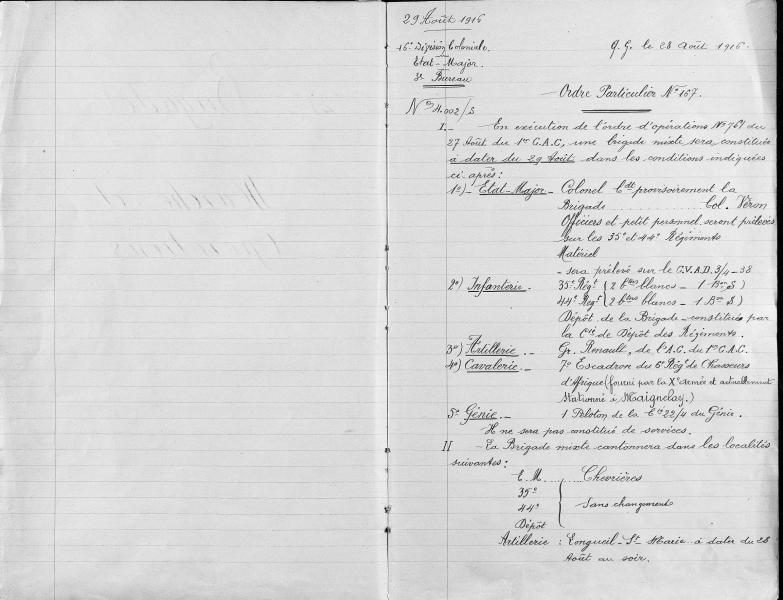 29 Août 1916
16e Division Coloniale.
Etat-Major.
3e Bureau
Q.G. le 28 août 1916.
Ordre Particulier No 167.
No 4.002/S
I.- En exécution de l'ordre d'opérations No 761 du
27 Août du 1er C.A.C, une brigade mixte sera constituée
à dater du 29 Août dans les conditions indiquées
ci-après:
1o)- Etat-Major - Colonel Cdt provisoirement la
Brigade Col. Véron
Officiers et petit personnel seront prélevés
sur les 35e et 44e Régiments
Matériel
- sera prélevé sur le C.V.A.D. 3/4-38
2o) Infanterie. - 35e Régt (2 btons blancs - 1 Bon S)
44e Régt (2 btons blancs - 1 Bon S)
Dépôt de la Brigade - constituée par
la Cie de Dépôt des Régiments.
3o) Artillerie. - Gr. Renault, de l'A.C. du 1er C.A.C.
4o) Cavalerie. - 7e Escadron du 6e Régt de Chasseurs
d'Afrique (fourni par la Xe armée et actuellement
stationné à Maignelay.)
5o Génie. - 1 Peloton de la Cie 22/4 du Génie.
Il ne sera pas constitué de services.
II - La Brigade mixte cantonnera dans les localités
suivantes:
E.M. ...... Chevrières
35e
44e } Sans changement
Dépôt
Artillerie : Longueil-St-Marie à dater du 28
Août au soir.